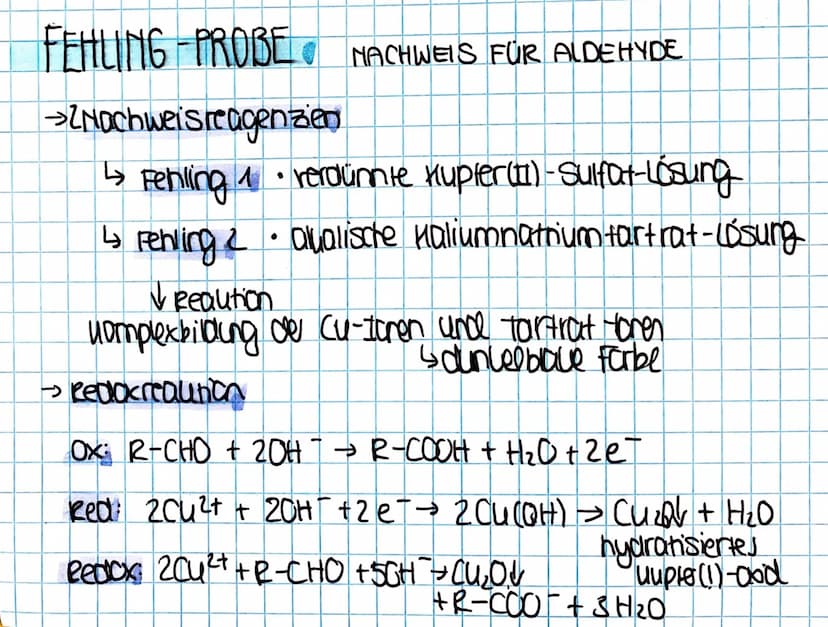 FEHLING-PROBE. NACHWEIS FÜR ALDEHYDE
→ 2 Nachweisreagenzien
↳ Fehling 1 · verdünnte Kupfer(II)-Sulfat-Lösung
↳ Fehling 2 · alkalische Kaliumnatriumtartrat-Lösung
↓ Reaktion
Komplexbildung der Cu-Ionen und Tartrat-Ionen
↳ dunkelblaue Farbe
→ Redoxreaktion
Ox: R-CHO + 2OH⁻ → R-COOH + H₂O + 2e⁻
Red: 2Cu²⁺ + 2OH⁻ + 2e⁻ → 2Cu(OH) → Cu₂O↓ + H₂O
hydratisiertes
Kupfer(I)-oxid
Redox: 2Cu²⁺ + R-CHO + 5OH⁻ → Cu₂O↓
+ R-COO⁻ + 3H₂O